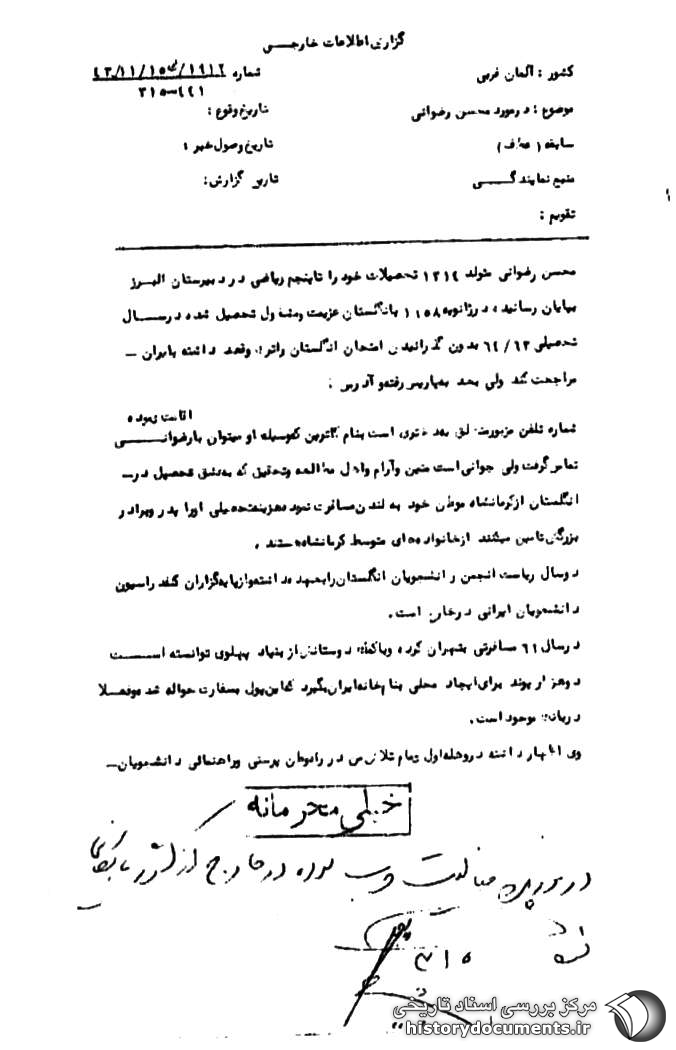 گزارش اطلاعات خارجی
کشور : آلمان غربی
شماره ۱۹۱۲/
۳۱۵-
موضوع : در مورد محسن رضوانی
تاریخ وقوع :
سابقه (عطف)
تاریخ وصول خبر :
منبع نمایندگی
تاریخ گزارش :
تقویم :
محسن رضوانی متولد ۱۳۱۴ تحصیلات خود را تا پنجم ریاضی در دبیرستان البرز
بپایان رسانید، در ژانویه ۱۱۵۸ بانگلستان عزیمت و مشغول تحصیل شده در سال
تحصیلی ۶۲/۶۳ بدون گذرانیدن امتحان انگلستان را ترک و قصد داشته بایران -
مراجعت کند ولی بعد به پاریس رفته و آدرس :
اقامت نموده
شماره تلفن مزبور متعلق به دختری است بنام کاترین که بوسیله او میتوان با رضوانی
تماس گرفت ولی جوانی است متین و آرام و اهل مطالعه و تحقیق که به عشق تحصیل در -
انگلستان از کرمانشاه موطن خود به لندن مسافرت نموده هزینه تحصیلی او را پدر و برادر
بزرگش تامین میکنند از خانواده های متوسط کرمانشاه هستند .
دو سال ریاست انجمن دانشجویان انگلستان را بعهده داشته و از پایه گزاران کنفدراسیون
دانشجویان ایرانی در خارج است .
در سال ۶۱ مسافرتی بتهران کرده و با کمک دوستانش از بنیاد پهلوی توانسته است
دو هزار پوند برای ایجاد محلی بنام خانه ایران بگیرد که این پول بسفارت حواله شد و فعلا
در بانک موجود است .
وی اظهار داشته در وهله اول تمام تلاش من در راه وطن پرستی و راهنمائی دانشجویان -
خیلی محرمانه
در خارج از کشور
۳۱۵
مرکز بررسی اسناد تاریخی
historydocuments.ir